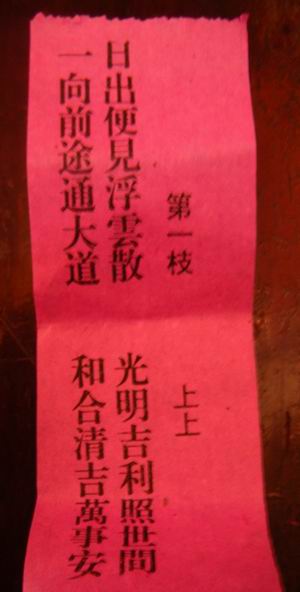 第一枝
上上
日出便見浮雲散
光明吉利照世間
一向前途通大道
和合清吉萬事安